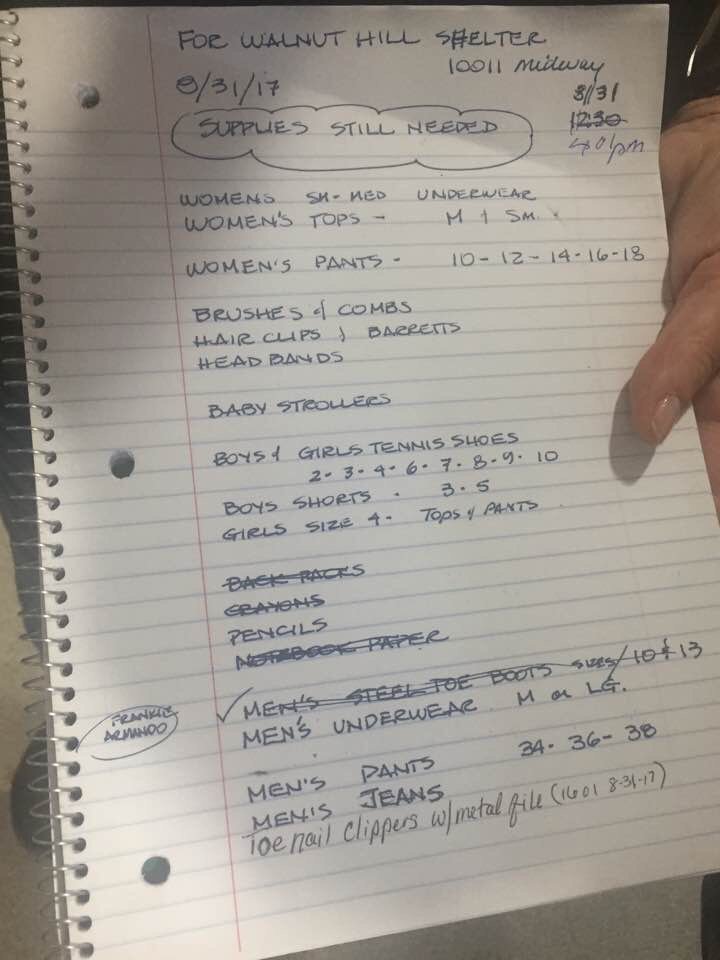 FOR WALNUT HILL SHELTER
10011 Midway
8/31/17
8/31
12:30
4:01pm
SUPPLIES STILL NEEDED
WOMENS SM-MED UNDERWEAR
WOMEN'S TOPS - M & SM.
WOMEN'S PANTS - 10-12-14-16-18
BRUSHES & COMBS
HAIR CLIPS & BARRETTS
HEAD BANDS
BABY STROLLERS
BOYS & GIRLS TENNIS SHOES
2-3-4-6-7-8-9-10
BOYS SHORTS - 3-5
GIRLS SIZE 4- TOPS & PANTS
BACK PACKS
CRAYONS
PENCILS
NOTEBOOK PAPER
MEN'S STEEL TOE BOOTS SIZES/10 & 13
FRANKIE
ARMANDO
MEN'S UNDERWEAR M or LG.
MEN'S PANTS 34-36-38
MEN'S JEANS
Toe nail clippers w/metal file (1601 8-31-17)